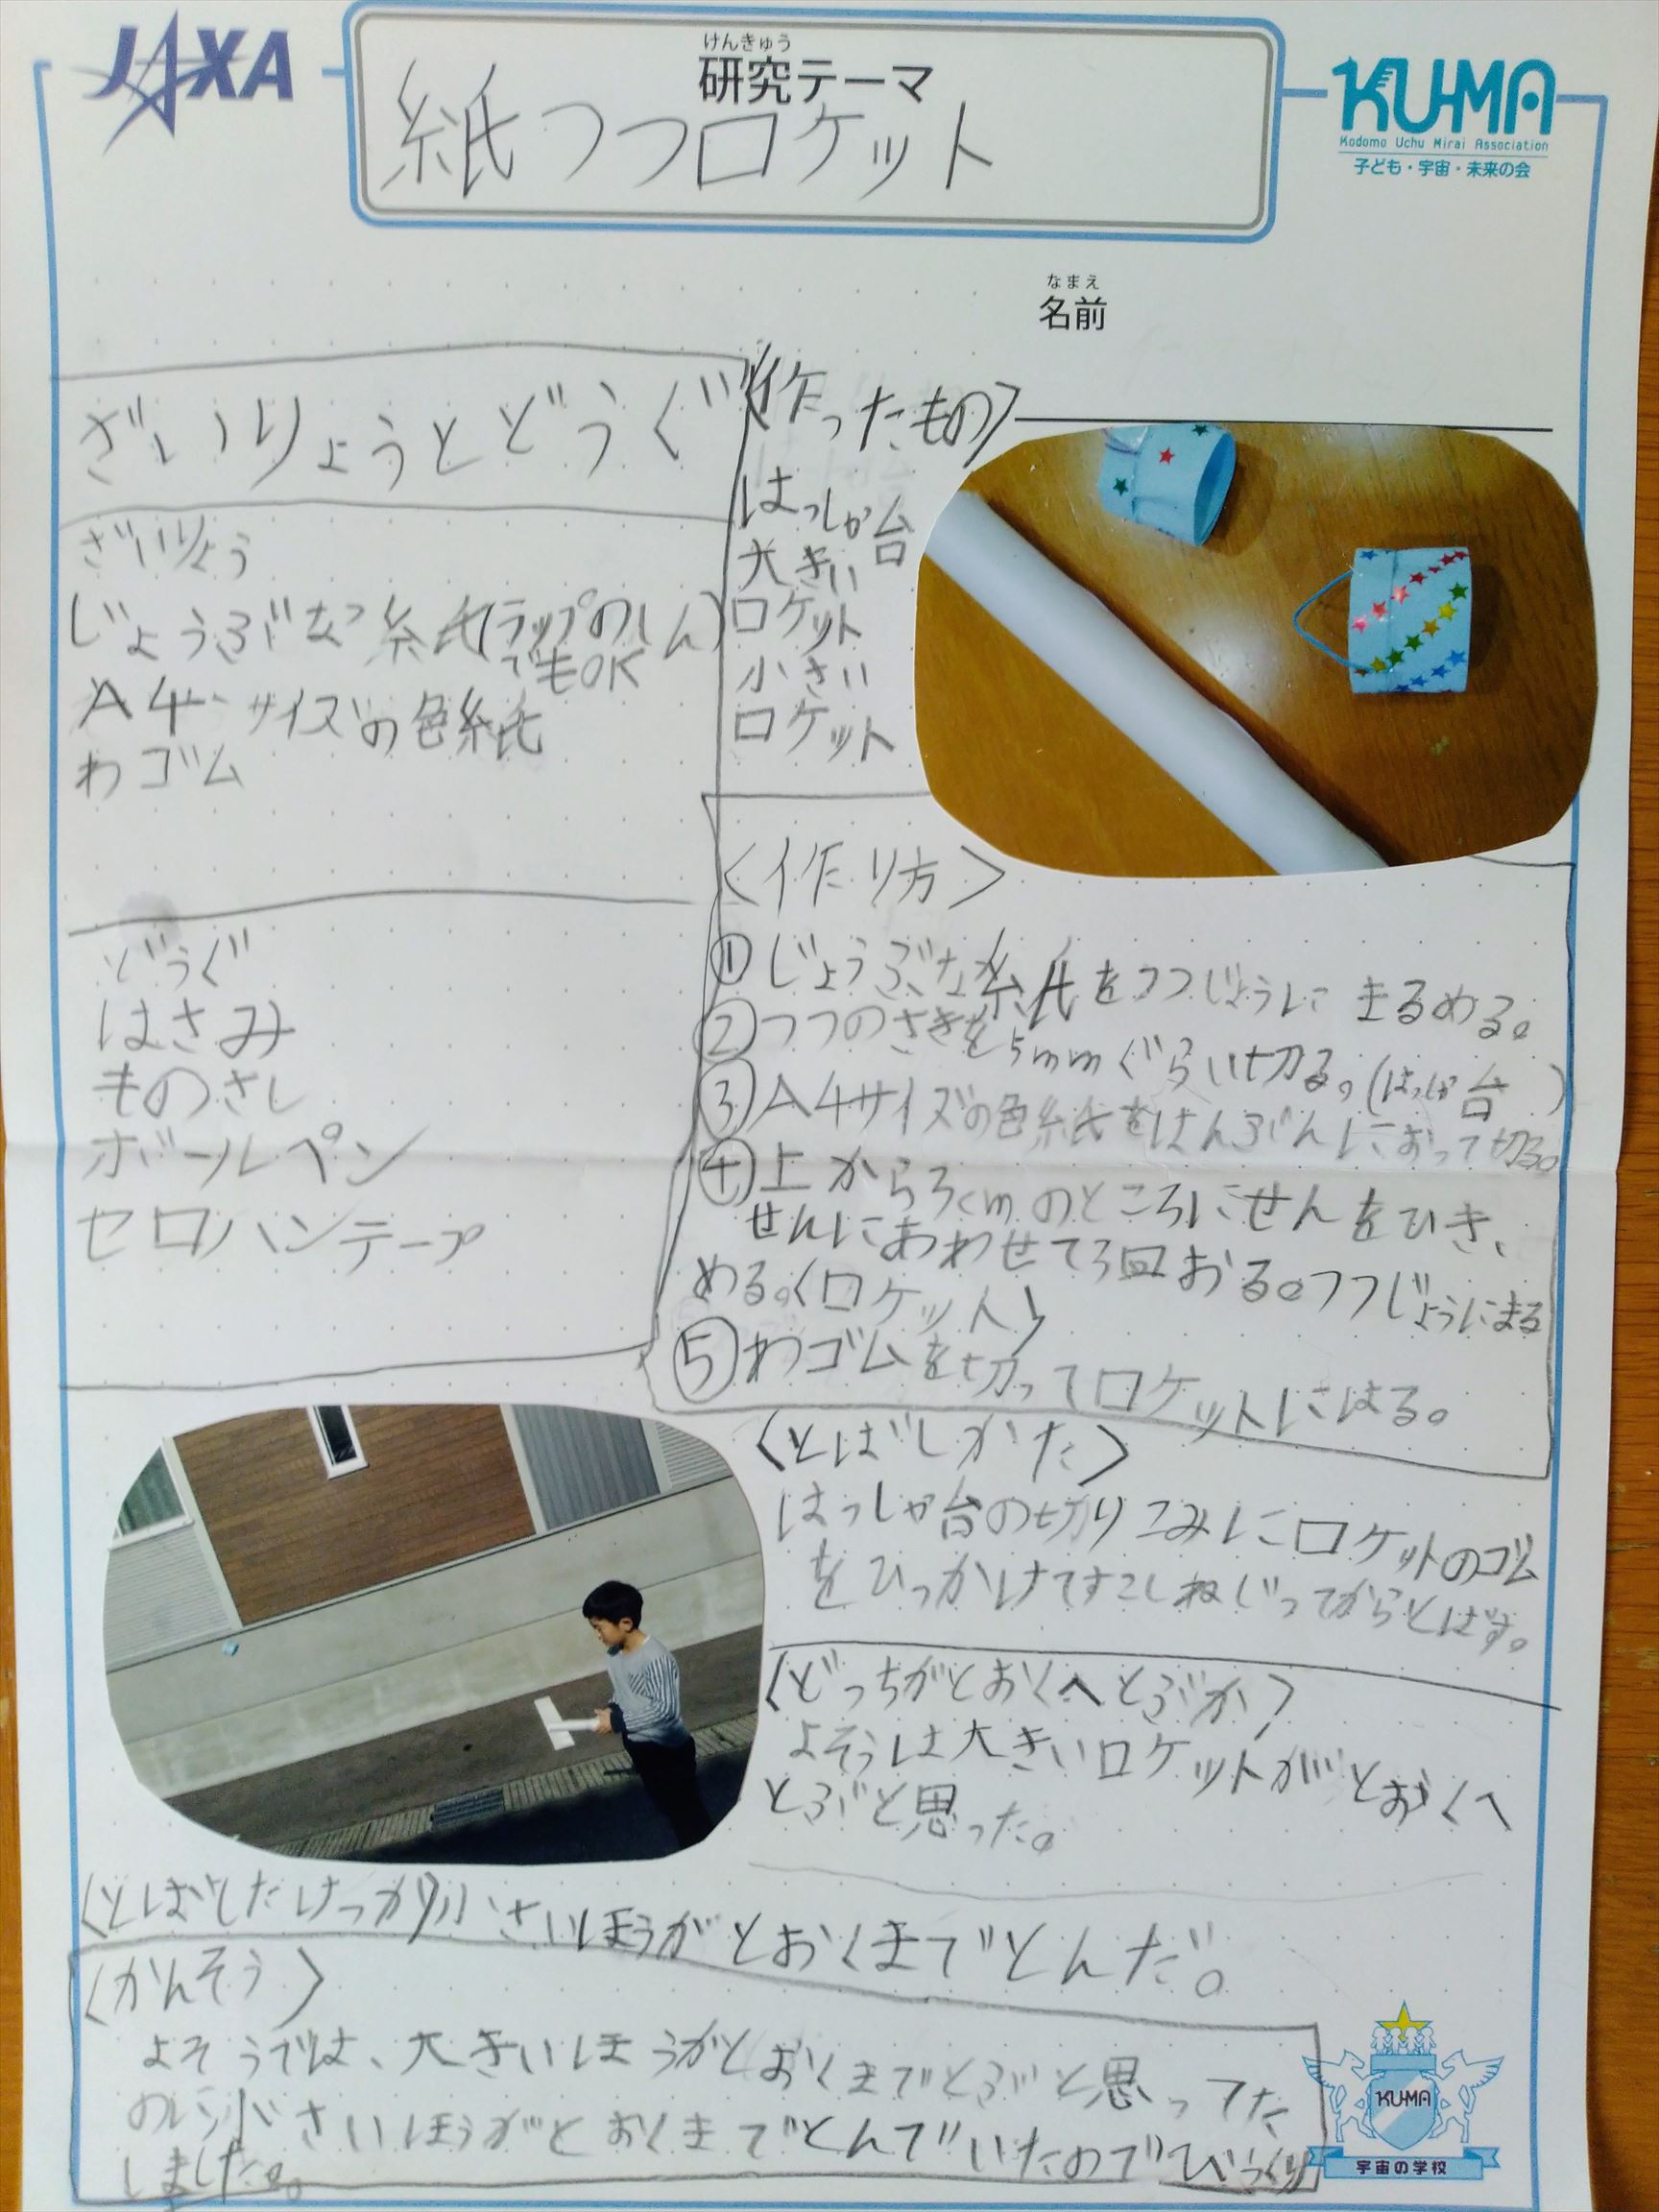 JAXA
けんきゅう
研究テーマ
紙つつロケット
KU-MA
Kodomo Uchu Mirai Association
子ども・宇宙・未来の会
なまえ
名前
ざいりょうとどうぐ
ざいりょう
じょうぶな紙(ラップのしん)
でもOK
A4サイズの色紙
わゴム
どうぐ
はさみ
ものさし
ボールペン
セロハンテープ
〈作ったもの〉
はっしゃ台
大きい
ロケット
小さい
ロケット
〈作り方〉
①じょうぶな紙をつつじょうにまるめる。
②つつのさきを5mmぐらい切る。(はっしゃ台)
③A4サイズの色紙をはんぶんにおって切る。
④上から3cmのところにせんをひき、
せんにあわせて3回おる。つつじょうにまる
める。〈ロケット〉
⑤わゴムを切ってロケットにはる。
〈とばしかた〉
はっしゃ台の切りこみにロケットのゴム
をひっかけてすこしねじってからとばす。
〈どっちがとおくへとぶか〉
よそうは大きいロケットがとおくへ
とぶと思った。
〈とばしたけっか〉小さいほうがとおくまでとんだ。
〈かんそう〉
よそうでは、大きいほうがとおくまでとぶと思ってた
のに小さいほうがとおくまでとんでいたのでびっくり
しました。
KU-MA
宇宙の学校